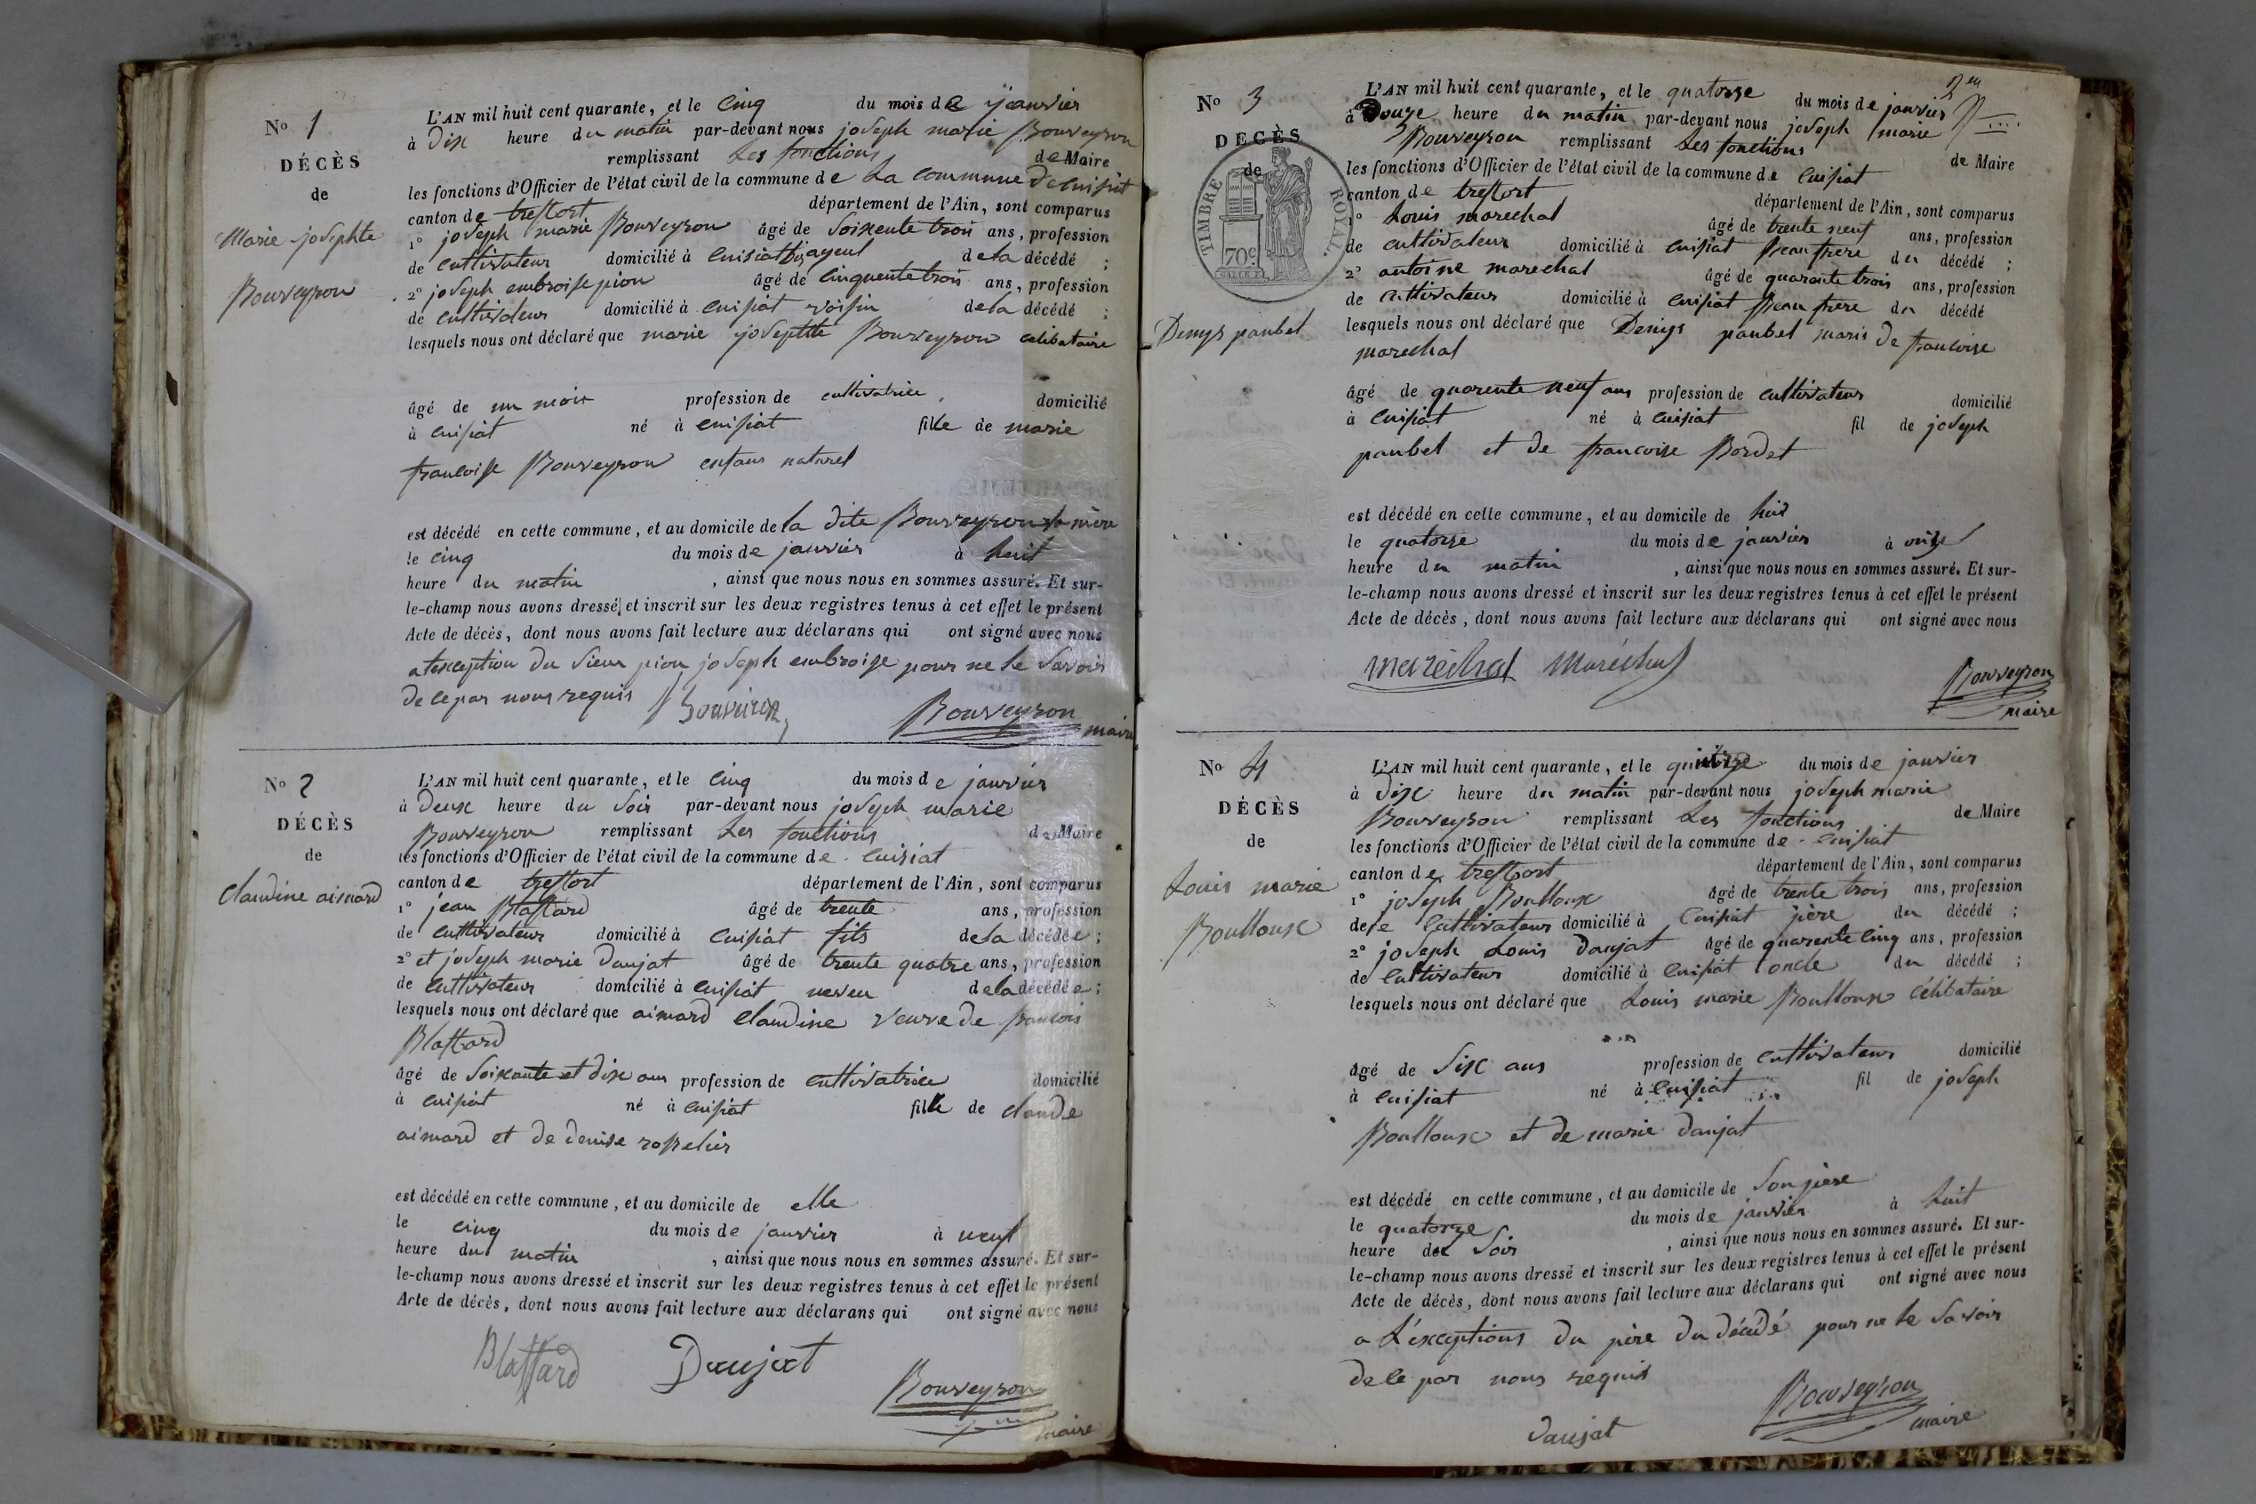 No 1
DÉCÈS
de
Marie josephte
Bouveyron
L'AN mil huit cent quarante, et le cinq du mois de janvier
à dix heure du matin par-devant nous joseph marie Bouveyron
remplissant les fonctions de Maire
les fonctions d'Officier de l'état civil de la commune de La commune de cuisiat
canton de treffort département de l'Ain, sont comparus
1° joseph marie Bouveyron âgé de soixente trois ans, profession
de cultivateur domicilié à cuisiat bisayeul de la décédé ;
2° joseph embroise pion âgé de cinquente trois ans, profession
de cultivateur domicilié à cuisiat voisin de la décédé ;
lesquels nous ont déclaré que marie josephte Bouveyron célibataire
âgé de un mois profession de cultivatrice domicilié
à cuisiat né à cuisiat fille de marie
francoise Bouveyron enfant naturel
est décédé en cette commune, et au domicile de la dite Bouveyron sa mère
le cinq du mois de janvier à huit
heure du matin , ainsi que nous nous en sommes assuré. Et sur-
le-champ nous avons dressé et inscrit sur les deux registres tenus à cet effet le présent
Acte de décès, dont nous avons fait lecture aux déclarans qui ont signé avec nous
a lexception du sieur pion joseph embroise pour ne le savoir
de ce par nous requis Bouveiron Bouveyron
maire
No 2
DÉCÈS
de
Claudine aimard
L'AN mil huit cent quarante, et le cinq du mois de janvier
à Deux heure du soir par-devant nous joseph marie
Bouveyron remplissant les fonctions de Maire
les fonctions d'Officier de l'état civil de la commune de cuisiat
canton de treffort département de l'Ain, sont comparus
1° jean Blattard âgé de trente ans, profession
de cultivateur domicilié à cuisiat fils de la décédée ;
2° et joseph marie Daujat âgé de trente quatre ans, profession
de cultivateur domicilié à cuisiat neveu de la décédée ;
lesquels nous ont déclaré que aimard claudine veuve de francois
Blattard
âgé de soixante et dix ans profession de cultivatrice domicilié
à cuisiat né à cuisiat fille de claude
aimard et de denise rosselier
est décédé en cette commune, et au domicile de elle
le cinq du mois de janvier à neuf
heure du matin , ainsi que nous nous en sommes assuré. Et sur-
le-champ nous avons dressé et inscrit sur les deux registres tenus à cet effet le présent
Acte de décès, dont nous avons fait lecture aux déclarans qui ont signé avec nous
Blattard Daujat Bouveyron
maire
No 3
DÉCÈS
de
TIMBRE ROYAL.
70c.
Denys paubel
L'AN mil huit cent quarante, et le quatorze du mois de janvier
à Douze heure du matin par-devant nous joseph marie
Bouveyron remplissant les fonctions de Maire
les fonctions d'Officier de l'état civil de la commune de cuisiat
canton de treffort département de l'Ain, sont comparus
1° Louis marechal âgé de trente neuf ans, profession
de cultivateur domicilié à cuisiat Beau frere du décédé ;
2° antoine marechal âgé de quarante trois ans, profession
de cultivateur domicilié à cuisiat Beau frere du décédé
lesquels nous ont déclaré que Denys paubel maris de francoise
marechal
âgé de quarente neuf ans profession de cultivateur domicilié
à cuisiat né à cuisiat fil de joseph
paubel et de francoise Bordet
est décédé en cette commune, et au domicile de lui
le quatorze du mois de janvier à onze
heure du matin , ainsi que nous nous en sommes assuré. Et sur-
le-champ nous avons dressé et inscrit sur les deux registres tenus à cet effet le présent
Acte de décès, dont nous avons fait lecture aux déclarans qui ont signé avec nous
marechal Maréchal Bouveyron
maire
No 4
DÉCÈS
de
Louis marie
Boulloux
L'AN mil huit cent quarante, et le quinze du mois de janvier
à Dix heure du matin par-devant nous joseph marie
Bouveyron remplissant Les fonctions de Maire
les fonctions d'Officier de l'état civil de la commune de cuisiat
canton de treffort département de l'Ain, sont comparus
1° joseph Boulloux âgé de trente trois ans, profession
de cultivateur domicilié à cuisiat père du décédé ;
2° joseph Louis daujat âgé de quarente cinq ans, profession
de cultivateur domicilié à cuisiat oncle du décédé ;
lesquels nous ont déclaré que Louis marie Boulloux célibataire
âgé de six ans profession de cultivateur domicilié
à cuisiat né à cuisiat fil de joseph
Boulloux et de marie daujat
est décédé en cette commune, et au domicile de son père
le quatorze du mois de janvier à huit
heure du soir , ainsi que nous nous en sommes assuré. Et sur-
le-champ nous avons dressé et inscrit sur les deux registres tenus à cet effet le présent
Acte de décès, dont nous avons fait lecture aux déclarans qui ont signé avec nous
a L'exceptions du père du décédé pour ne le savoir
de ce par nous requis
daujat Bouveyron
maire